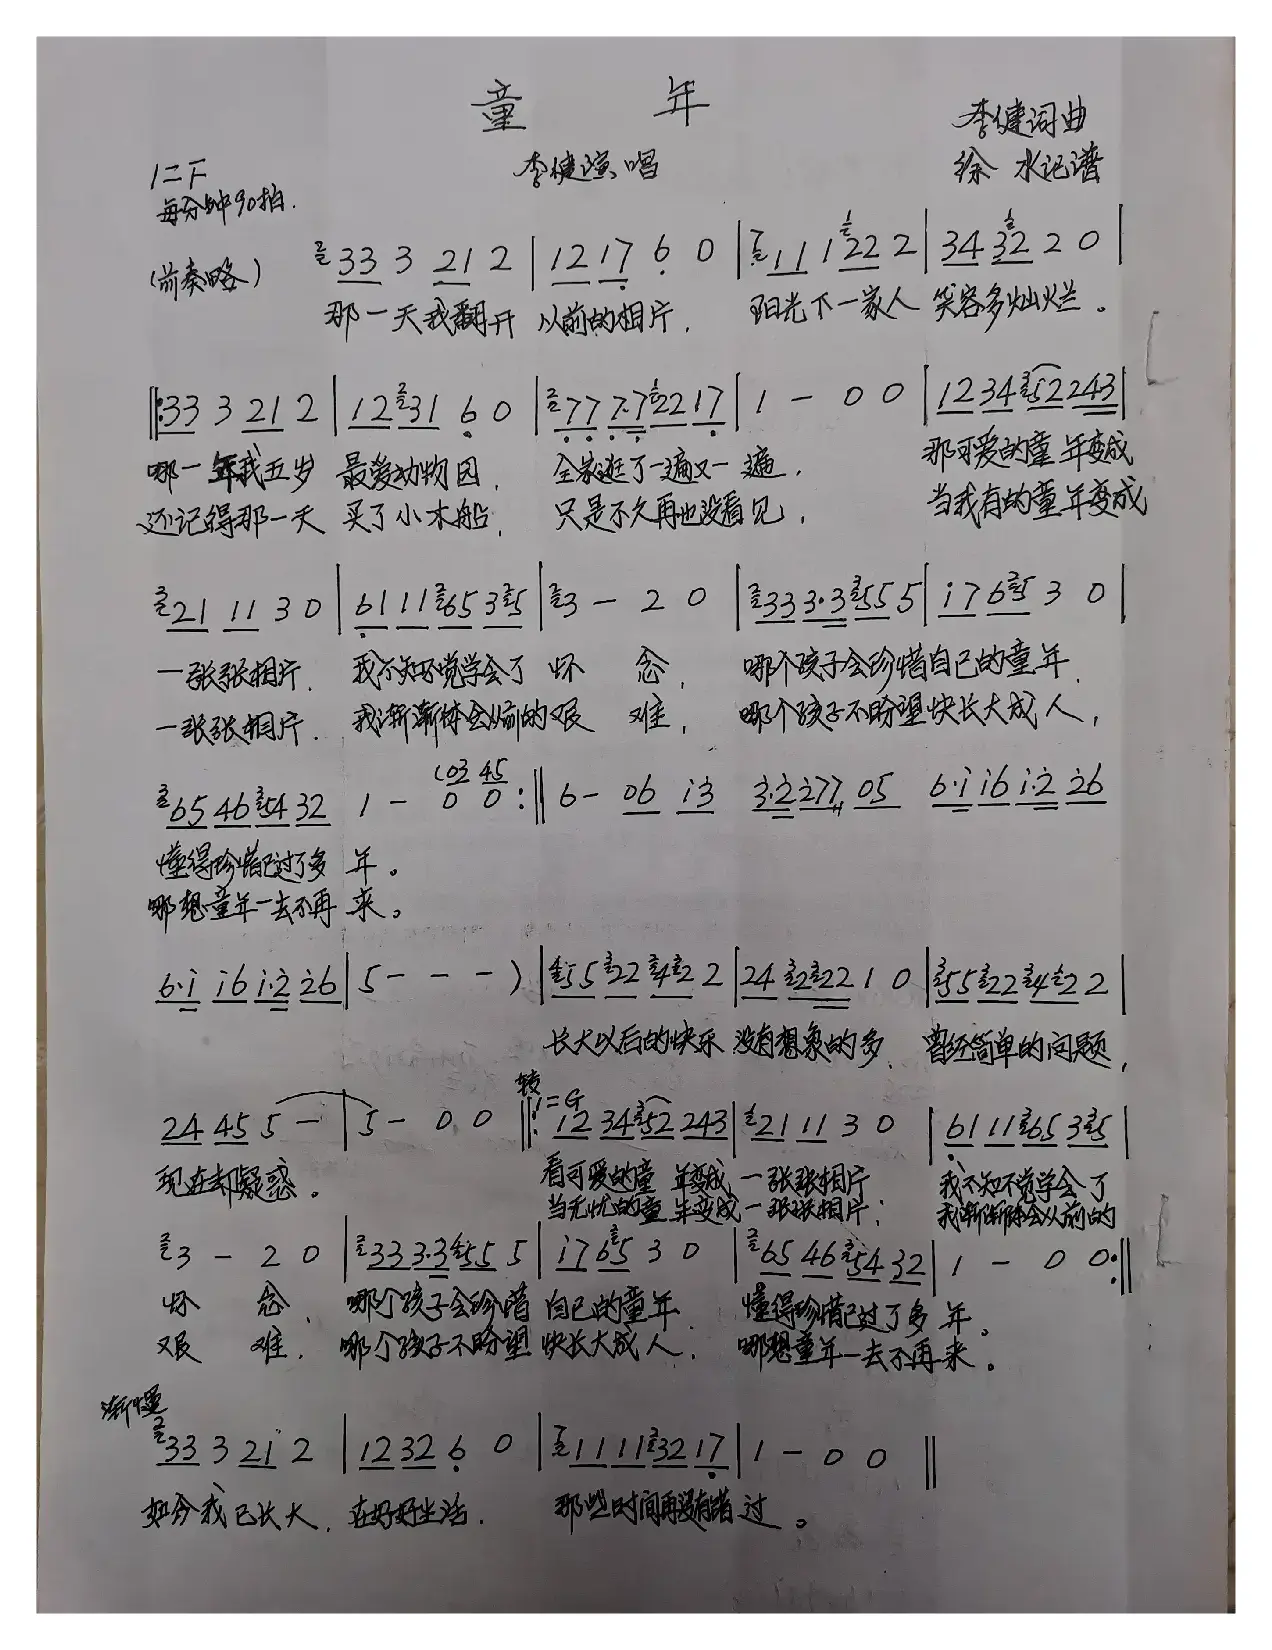 童 年
李健词曲
李健演唱
徐 水记谱
1=F
每分钟90拍.
(前奏略)
33 3 21 2 | 12 17 6 0 | 11 1 22 2 | 34 32 2 0 |
那一天我翻开 以前的相片, 阳光下一家人 笑容多灿烂。
‖:33 3 21 2 | 12 31 6 0 | 77 7·7 22 17 | 1 - 0 0 | 12 34 52 243 |
哪一年我五岁 最爱动物园, 全家逛了一遍又一遍, 那可爱的童年变成
还记得那一天 买了小木船, 只是不久再也没看见, 当我有的童年变成
21 11 3 0 | 61 11 65 35 | 3 - 2 0 | 33 3·3 55 5 | i7 65 3 0 |
一张张相片, 我不知不觉学会了 怀 念, 哪个孩子会珍惜自己的童年,
一张张相片, 我渐渐体会从前的艰 难, 哪个孩子不盼望快长大成人,
(03 45
65 46 54 32 1 - 0 0 :‖ 6 - 06 i3 3·2 277 05 6·i i6 i·2 26
懂得珍惜已过了多 年。
哪想童年一去不再来。
6·i i6 i·2 26 | 5 - - - ) | 55 22 42 2 | 24 22 22 1 0 | 55 22 42 2 |
长大以后的快乐 没有想象的多, 曾经简单的问题,
转1=G
24 45 5 - | 5 - 0 0 ‖: 12 34 52 243 | 21 11 3 0 | 61 11 65 35 |
现在却疑惑。 看可爱的童年变成 一张张相片 我不知不觉学会了
当无忧的童年变成一张张相片; 我渐渐体会从前的
3 - 2 0 | 33 3·3 55 5 | i7 65 3 0 | 65 46 54 32 | 1 - 0 0 :‖
怀 念, 哪个孩子会珍惜 自己的童年, 懂得珍惜已过了多年。
艰 难, 哪个孩子不盼望 快长大成人, 哪想童年一去不再来。
渐慢
33 3 21 2 | 12 32 6 0 | 11 11 32 17 | 1 - 0 0 ‖
如今我已长大, 在好好生活, 那些时间再没有错过。